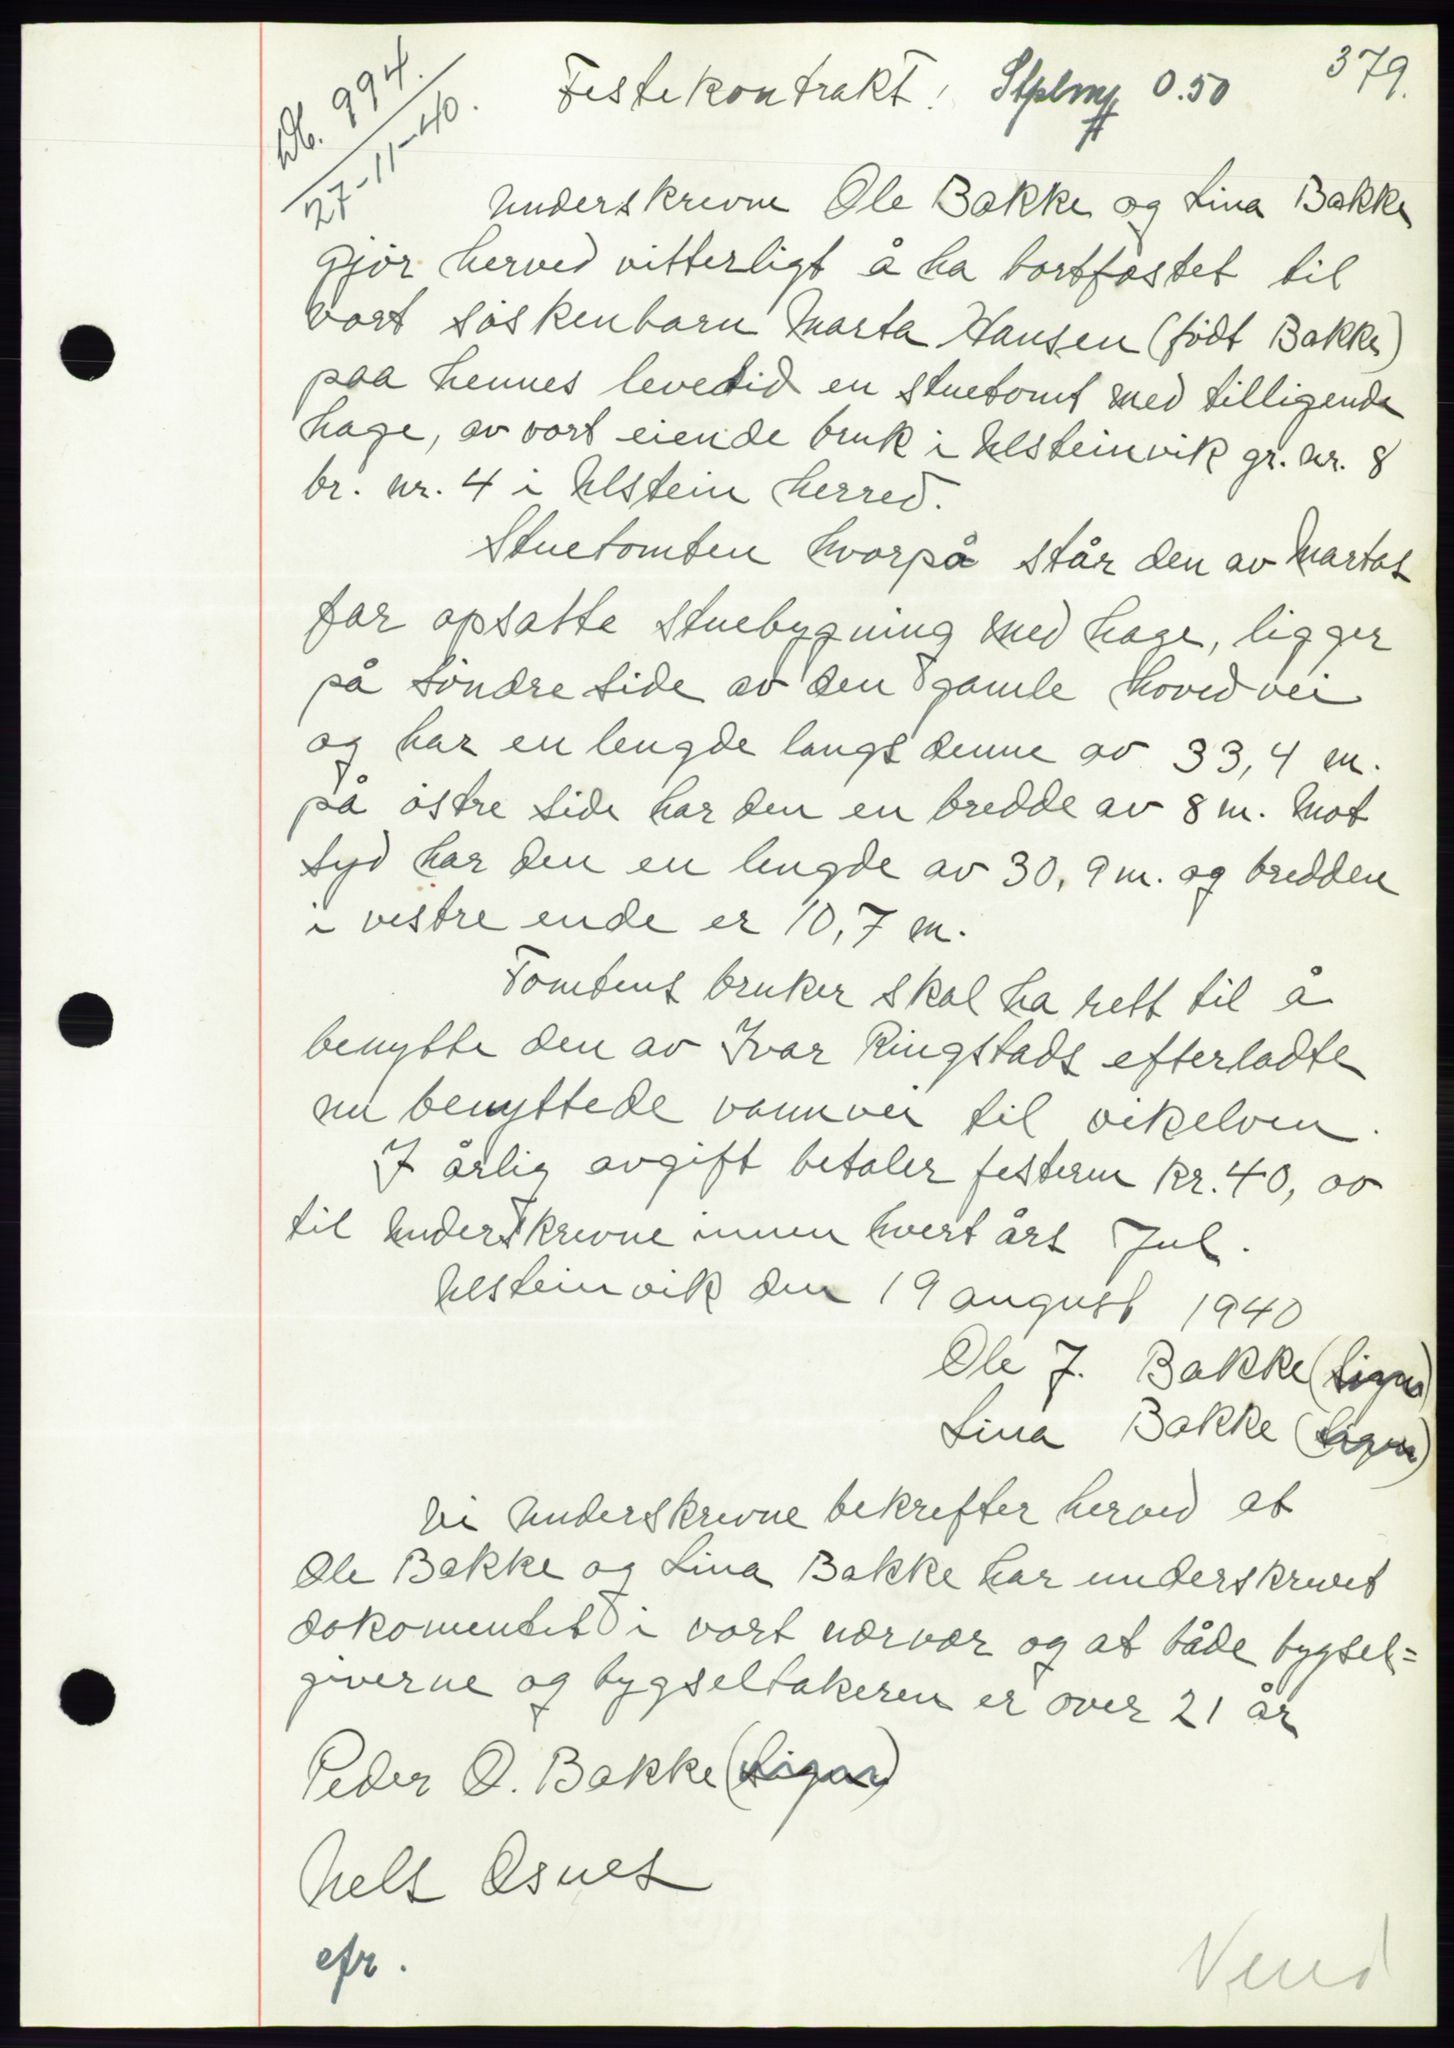 379.
Db. 994.
27-11-40.
Festekontrakt! Stplm 0.50
Underskrevne Ole Bakke og Lina Bakke
gjör herved vitterligt å ha bortfæstet til
vort söskenbarn Marta Hansen (födt Bakke)
paa hennes levetid en stuetomt med tilligende
hage, av vort eiende bruk i Ulsteinvik gr. nr. 8
br. nr. 4 i Ulstein herred.
Stuetomten hvorpå står den av Martas
far opsatte stuebygning med hage, ligger
på söndre side av den gamle hovedvei
og har en lengde langs denne av 33,4 m.
på östre side har den en bredde av 8 m. Mot
syd har den en lengde av 30,9 m. og bredden
i vestre ende er 10,7 m.
Tomtens bruker skal ha rett til å
benytte den av Ivar Ringstads efterladte
nu benyttede vannvei til vikelven.
I årlig avgift betaler festeren kr. 40, av
til underskrevne innen hvert års Jul.
Ulsteinvik den 19 august 1940
Ole J. Bakke (sign)
Lina Bakke (sign)
Vi underskrevne bekrefter herved at
Ole Bakke og Lina Bakke har underskrevet
dokomentet i vort nærvær og at både bygsel=
giverne og bygseltakeren er over 21 år
Peder O. Bakke (sign)
Nels Osnes
efr.
Vend